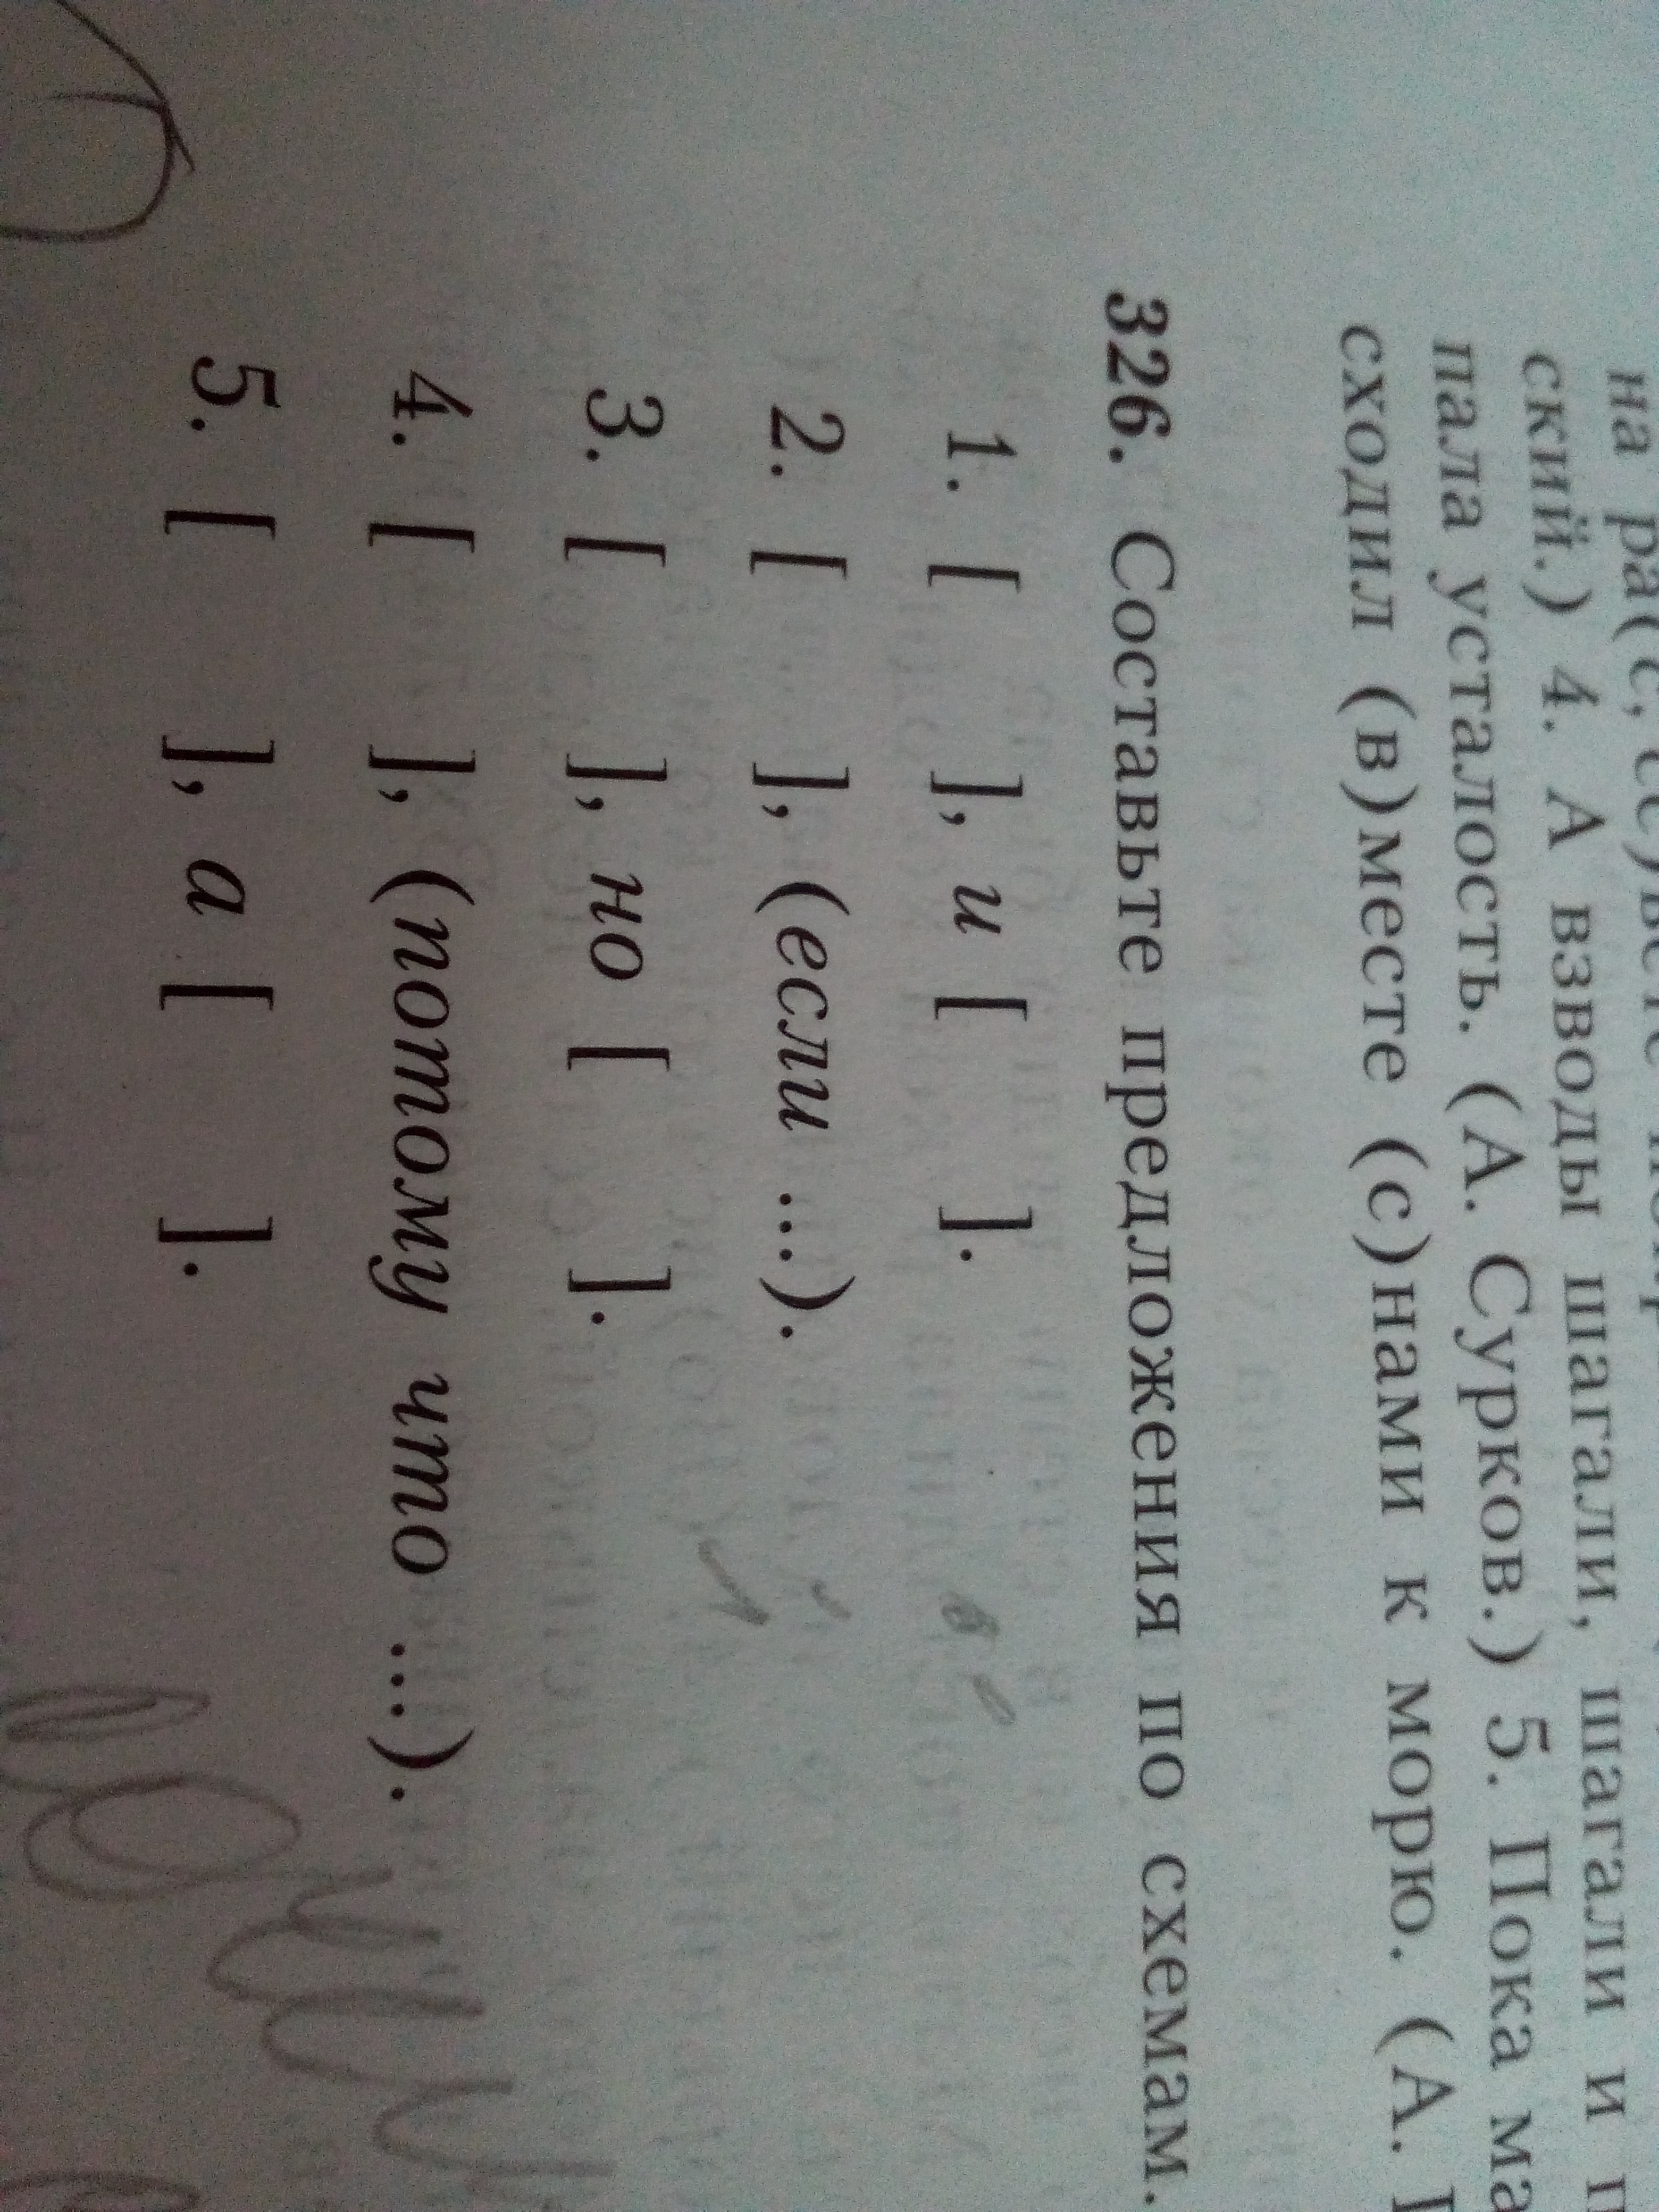 на ра(с, сс)
ский.) 4. А взводы шагали, шагали и
пала усталость. (А. Сурков.) 5. Пока
сходил (в)месте (с)нами к морю. (А.
326. Составьте предложения по схемам.
1. [ ], и [ ].
2. [ ], (если ...).
3. [ ], но [ ].
4. [ ], (потому что ...).
5. [ ], а [ ].